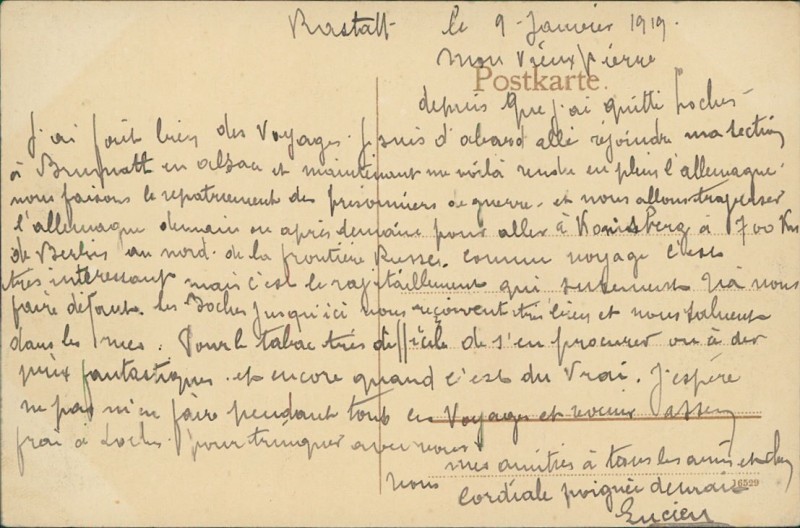 Rastatt le 9 Janvier 1919.
Mon Vieux Pierre
Postkarte.
depuis que j'ai quitté Loches
j'ai fait bien des Voyages. Je suis d'abord allé rejoindre ma section
à Brumatt en alsace et maintenant me voilà rendu en pleine l'allemagne.
nous faisons le repatriement des prisonniers de guerre. et nous allons traverser
l'allemagne demain ou après demain pour aller à Konisberg à 1700 Km
de Berlin au nord. de la frontière Russe. comme voyage c'est
très intéressant mais c'est le ravitaillement qui surement va nous
faire défaut. les Boches jusqu'ici nous reçoivent très bien et nous saluent
dans les rues. Pour le tabac très difficile de s'en procurer ou à des
prix fantastiques. et encore quand c'est du Vrai. J'espère
ne pas m'en faire pendant tout ce Voyage et revenir assez
frai à Loches pour trinquer avec vous.
mes amitiés à tous les amis et chez
vous cordiale poignée de main
16529
Lucien